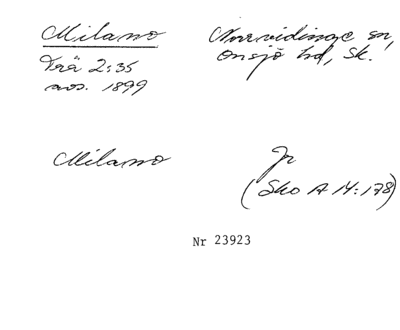 Milano
Norrvidinge sn,
Onsjö hd, Sk.
Trä 2:35
avs. 1899
Milano
Jr
(Sko A 14:178)
Nr 23923